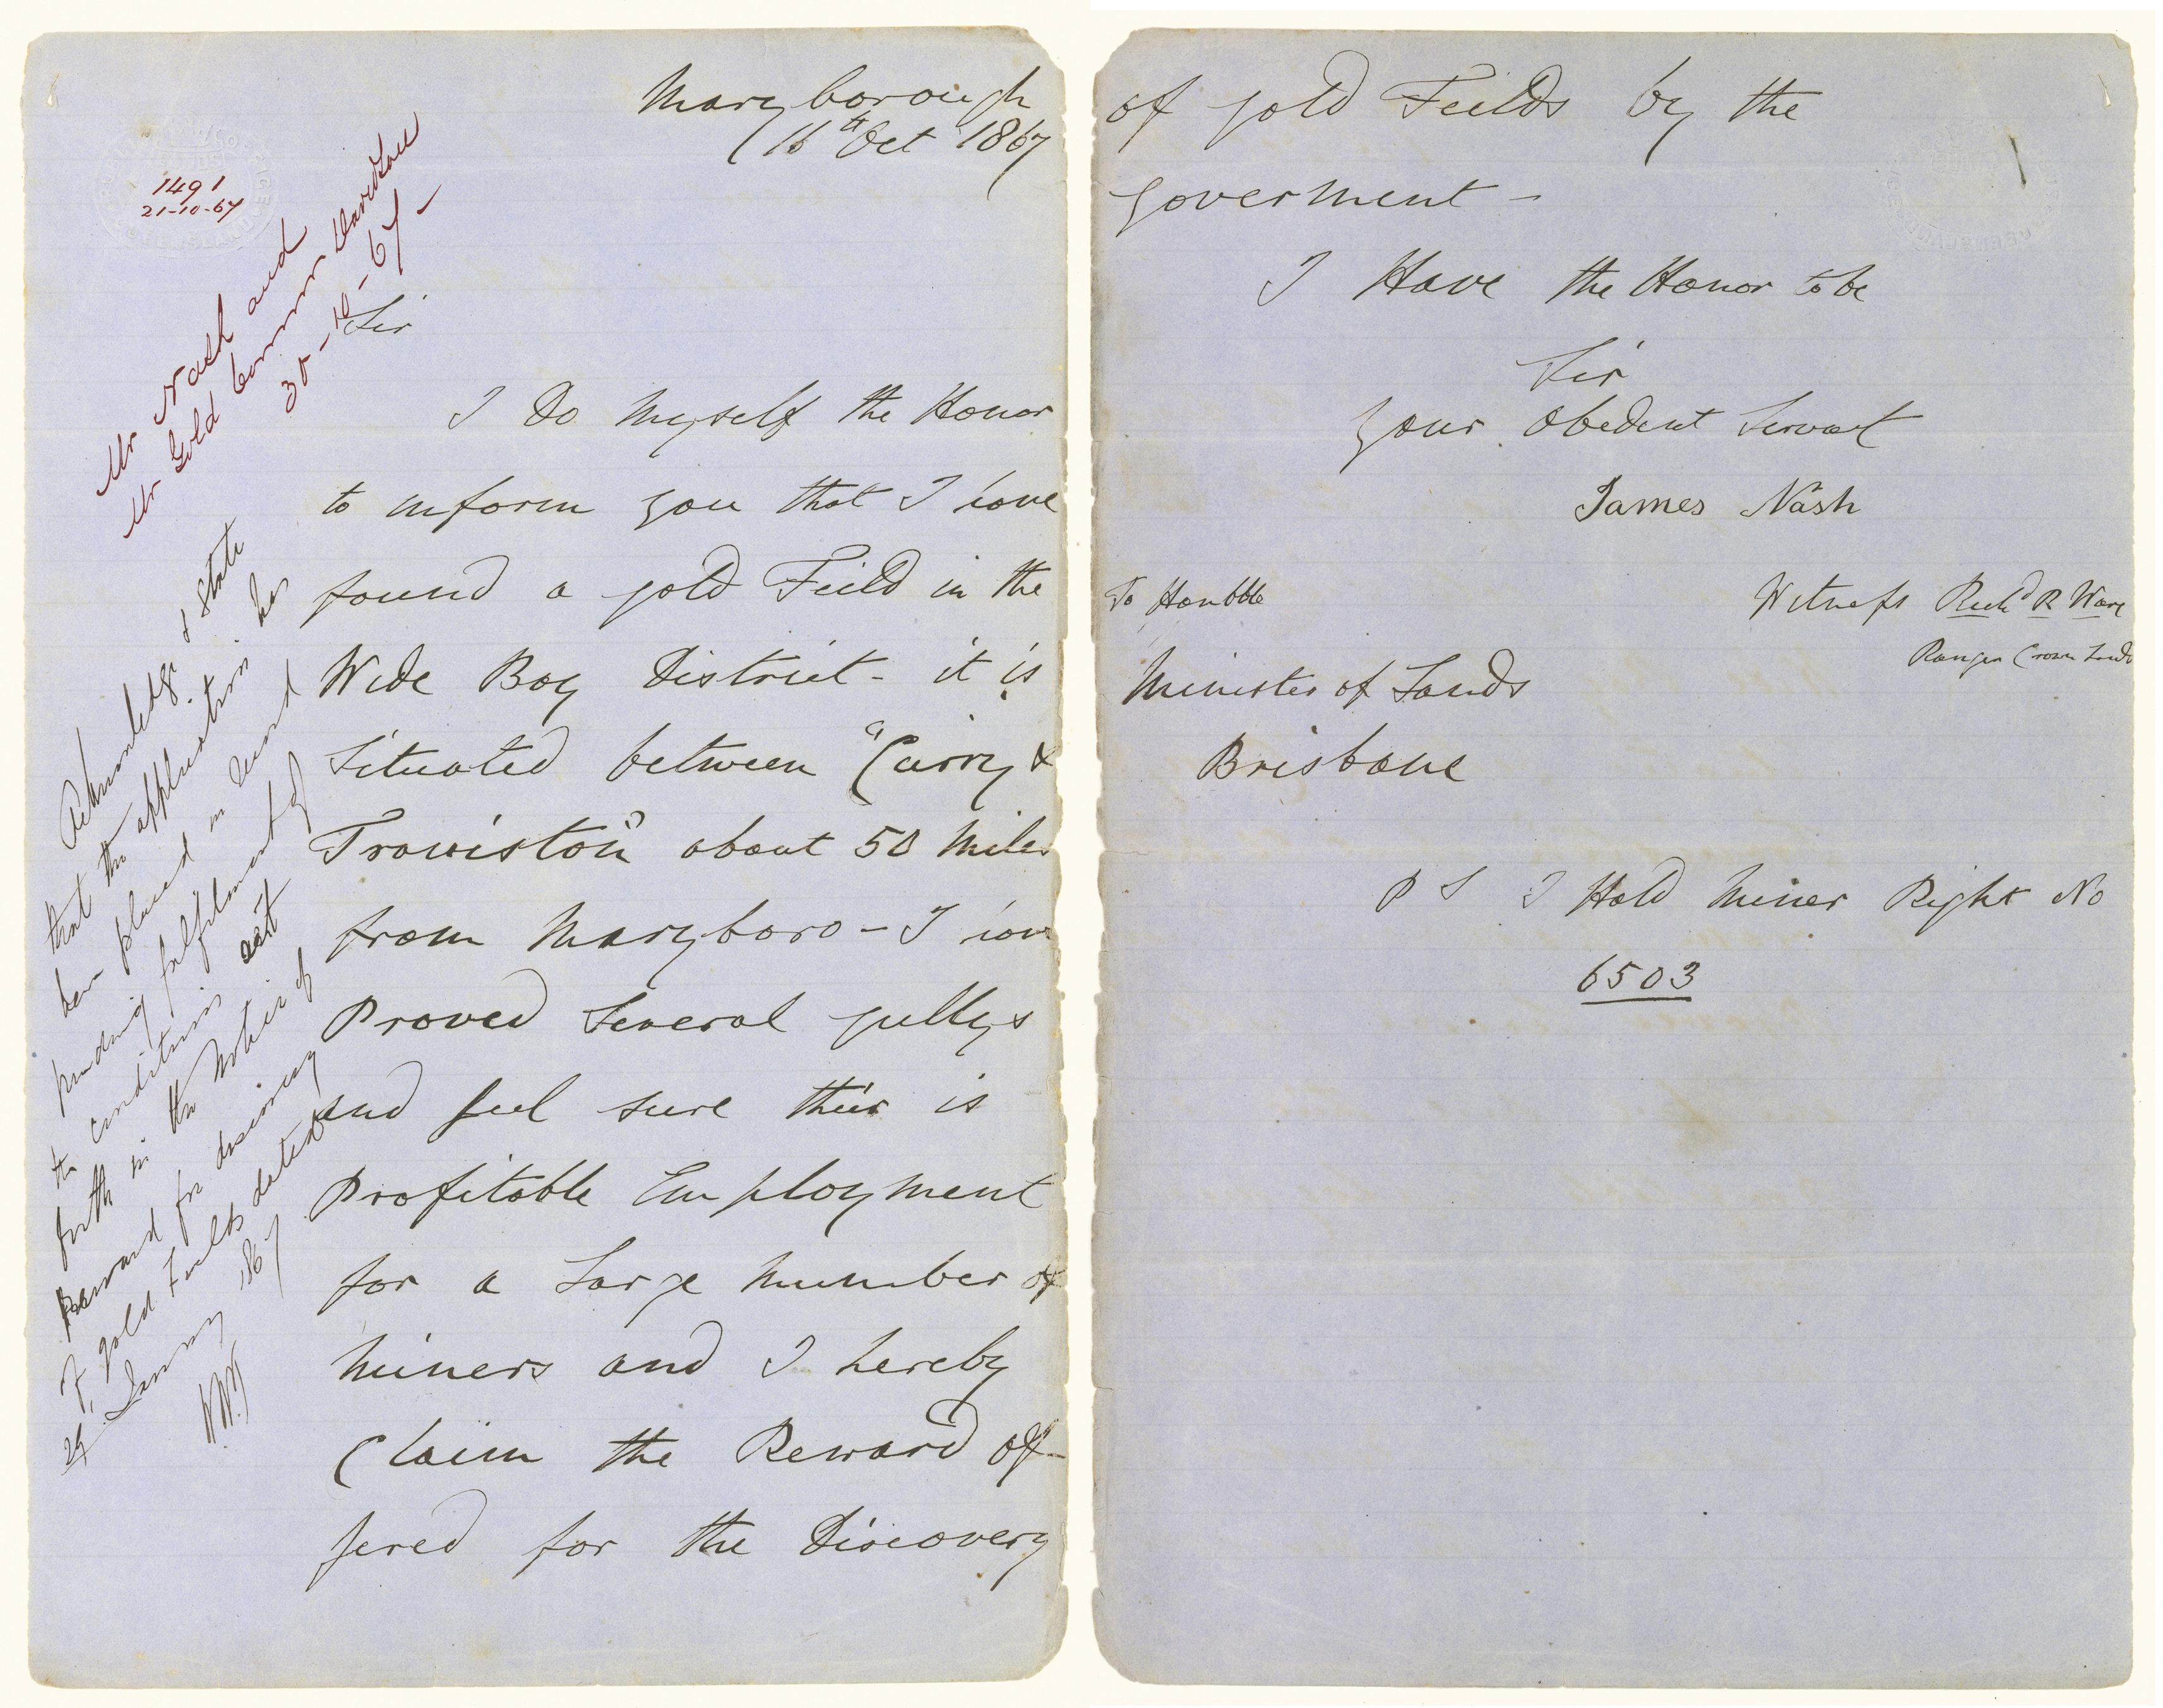 Maryborough
16th Oct 1867
1491
21-10-67
Mr Nash and
Mr Gold Commr Davidson
30-10-67-
Sir
I Do Myself the Honor
to inform you that I have
found a gold Feild in the
Wide Bay District - it is
Situated between "Curry &
Traviston" about 50 Miles
from Maryboro - I have
Proved Several gullys
and feel sure their is
Profitable Employment
for a Large Number of
Miners and I hereby
Claim the Reward of-
fered for the Discovery
Acknowledge & State
that the application has
been placed in record
pending fulfilment of
the conditions set
forth in the Notice of
Reward for discovery
of gold Fields dated
January 1867
of gold Feilds by the
goverment -
I Have the Honor to be
Sir
Your Obedent Servant
James Nash
Witness Richd R Ware
Ranger Crown Lands
To Honbble
Minister of Lands
Brisbane
P S I Hold Miner Right No
6503